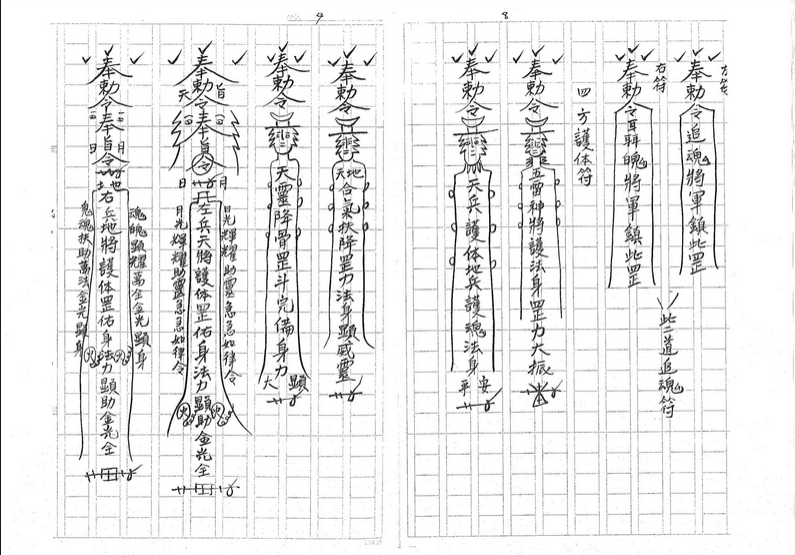 8
左符
奉勅令追魂將軍鎮此罡
右符
奉勅令聶魄將軍鎮此罡
此二道追魂符
四方護体符
奉勅令五雷神將護法身罡力大振
奉勅令天兵護体地兵護魂法身
平安
9
奉勅令天地合氣扶降罡力法身顯威靈
奉勅令天靈降骨罡斗完備身力
大顯
奉旨
天奉勅令奉旨令
日月
日光輝耀助靈急急如律令
左兵天將護体罡佑身法力顯助金光全
月光輝耀助靈急急如律令
奉勅令奉旨令
日月
魂魄顯耀萬全金光顯身
右兵地將護体罡佑身法力顯助金光全
鬼魂扶助萬法金光顯身